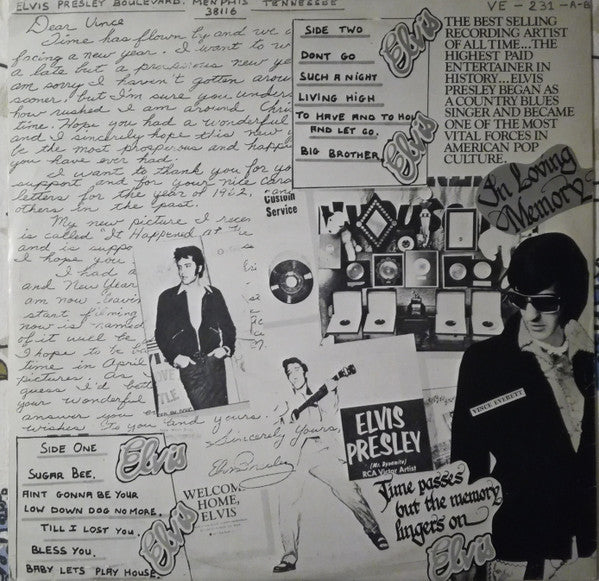 ELVIS PRESLEY BOULEVARD. MEMPHIS TENNESSEE
38116
VE-231-A-B
Dear Vince
Time has flown by and we
facing a new year. I want to w
a late but a
am sorry I haven't gotten arou
sooner, but I'm sure you unders
how rushed I am around Chris
time. Hope you had a wonderful
and I sincerely hope this new y
be the most prosperous and happ
you have ever had.
I want to thank you for yo
support and for your nice car
letters for the year of 1962, and
others in the past.
My new picture I recen
is called "It Happened At The
and is suppo
I hope you
I had a
and New Year
am now leavin
start filming
now is named
of it will be
I hope to be b
time in April
pictures. As
guess I'd bett
your wonderful
answer you
wishes to you and yours.
Sincerely Yours,
Elvis Presley
SIDE TWO
DONT GO
SUCH A NIGHT
LIVING HIGH
TO HAVE AND TO HOL
AND LET GO.
BIG BROTHER.
Elvis
Elvis
THE BEST SELLING
RECORDING ARTIST
OF ALL TIME...THE
HIGHEST PAID
ENTERTAINER IN
HISTORY...ELVIS
PRESLEY BEGAN AS
A COUNTRY BLUES
SINGER AND BECAME
ONE OF THE MOST
VITAL FORCES IN
AMERICAN POP
CULTURE.
In Loving
Memory
Custom
Service
VINCE EVERETT
ELVIS
PRESLEY
(Mr. Dynamite)
RCA Victor Artist
WELCOME
HOME,
ELVIS
Time passes
but the memory
lingers on...
Elvis
SIDE ONE
SUGAR BEE.
AINT GONNA BE YOUR
LOW DOWN DOG NO MORE.
TILL I LOST YOU.
BLESS YOU.
BABY LETS PLAY HOUSE.
Elvis
Elvis